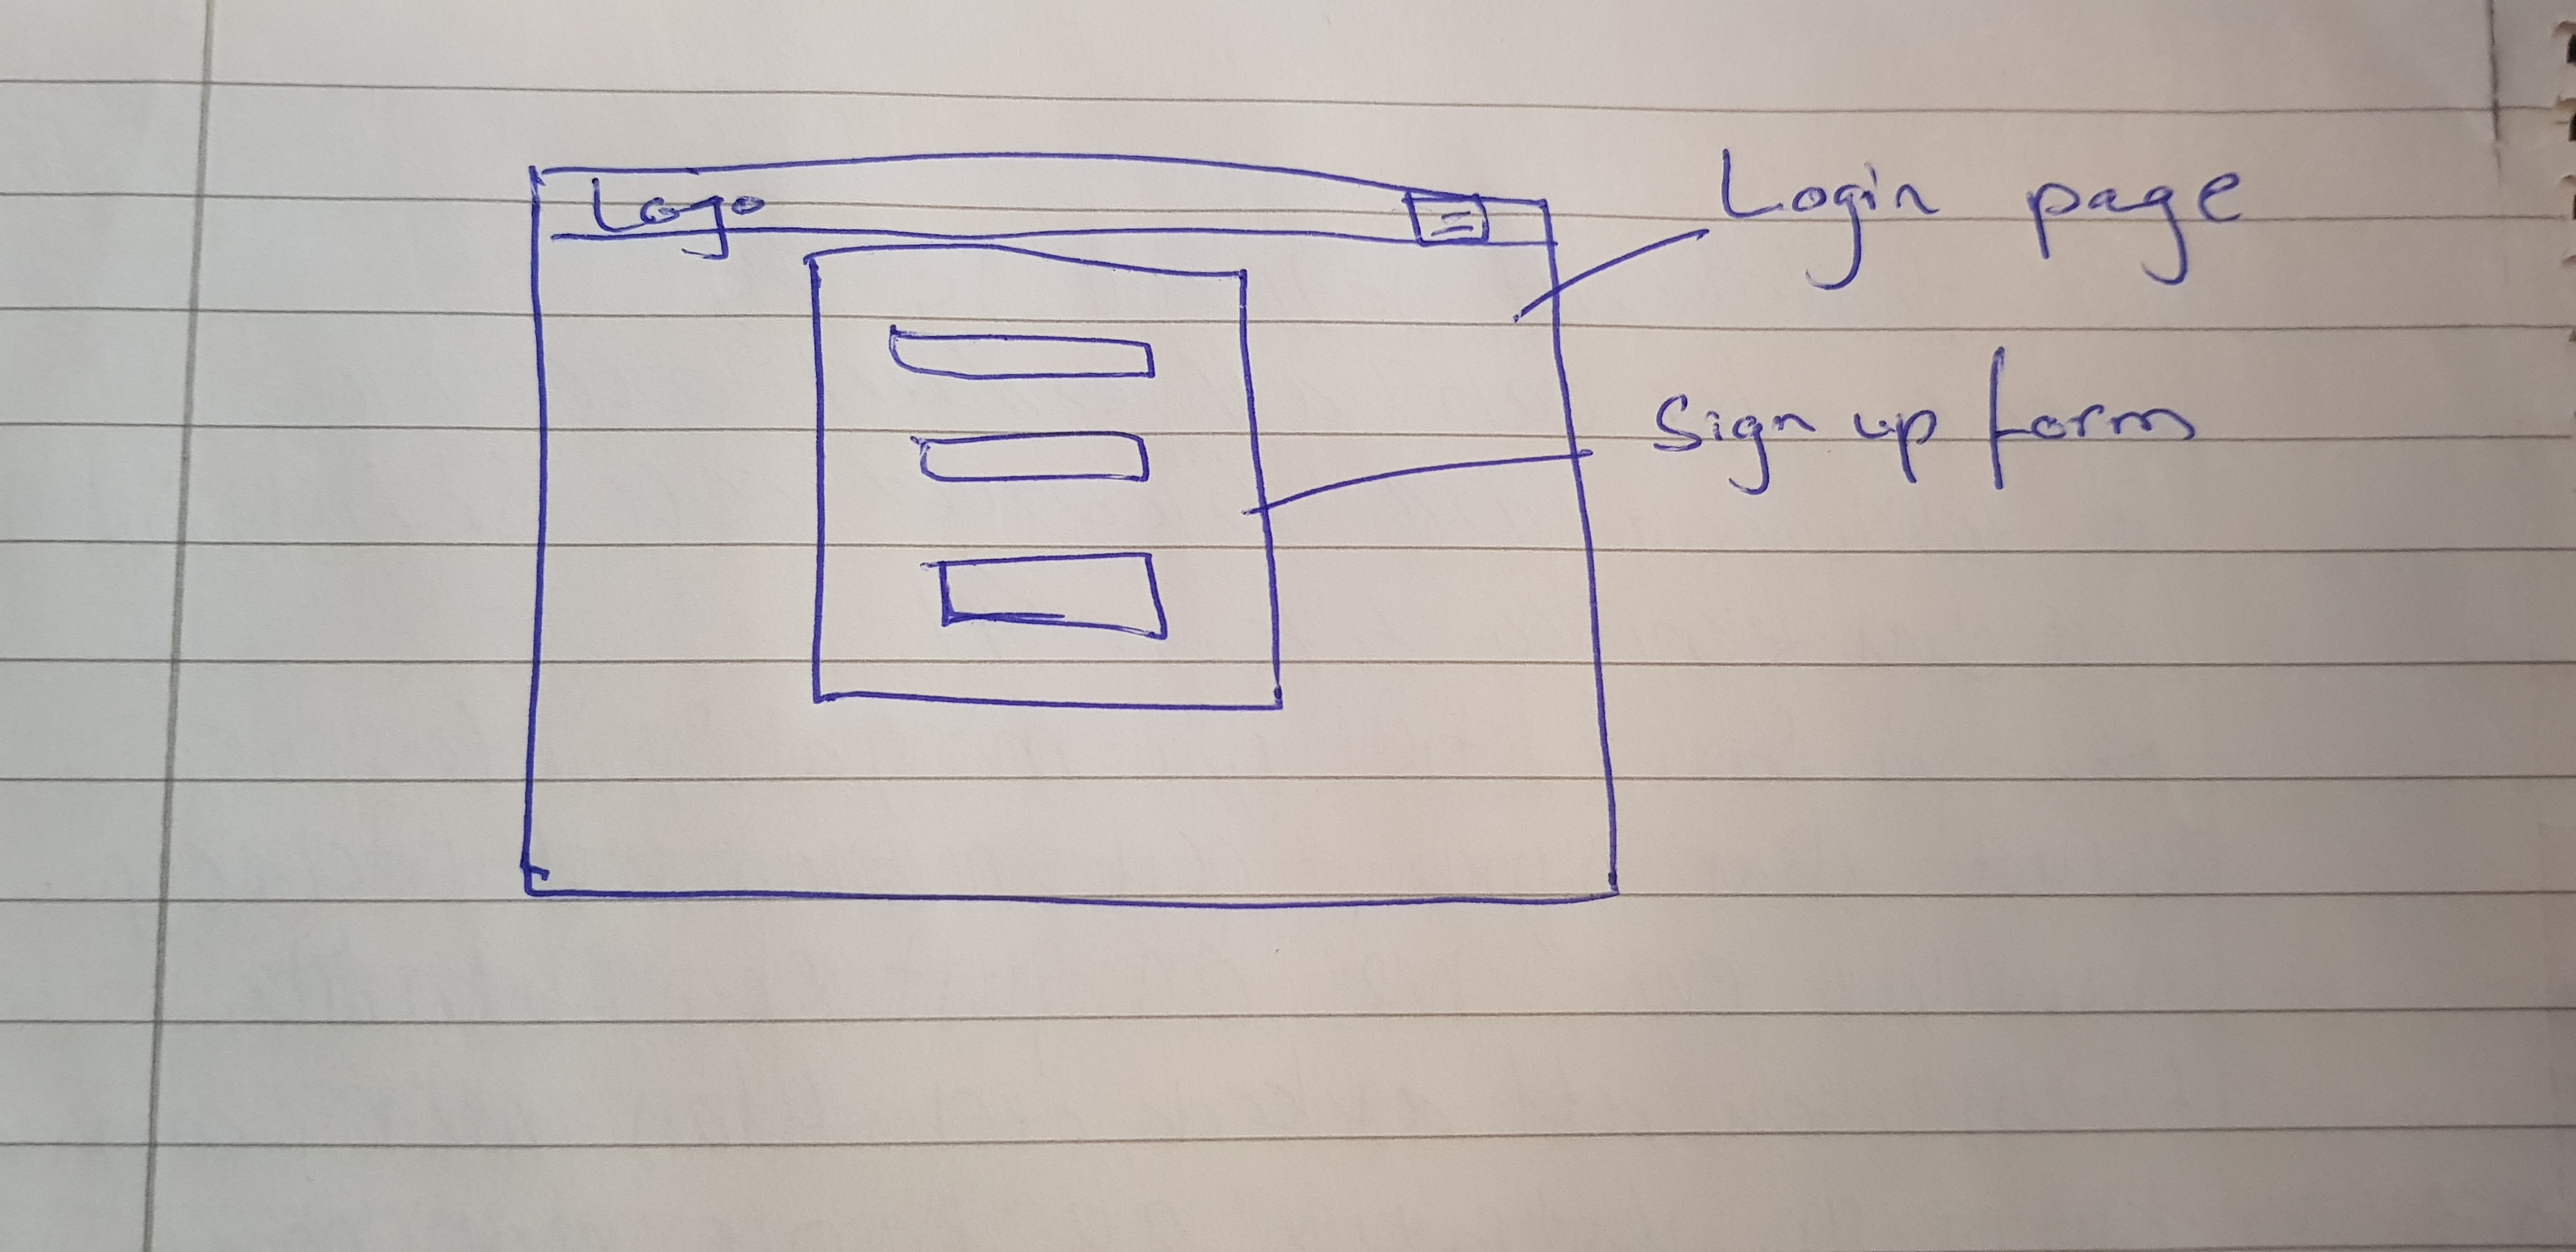 Logo
Login page
Sign up form